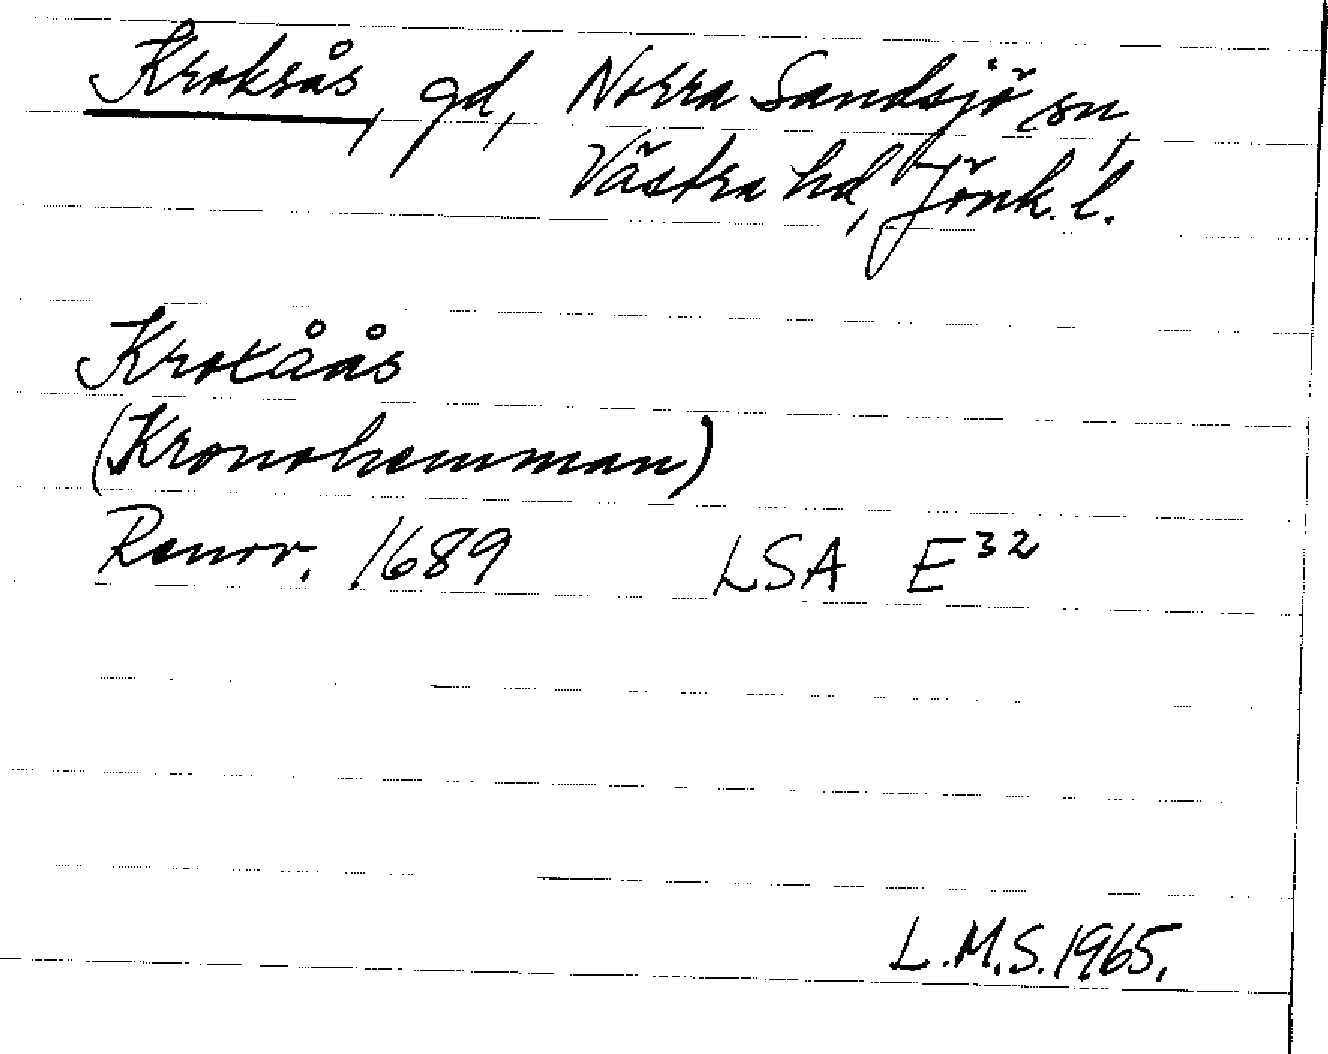 Kroksås, gd, Norra Sandsjö sn,
Västra hd, Jönk. l.
Kroxåås
(Kronohemman)
Renov. 1689 LSA E³²
L.M.S. 1965.